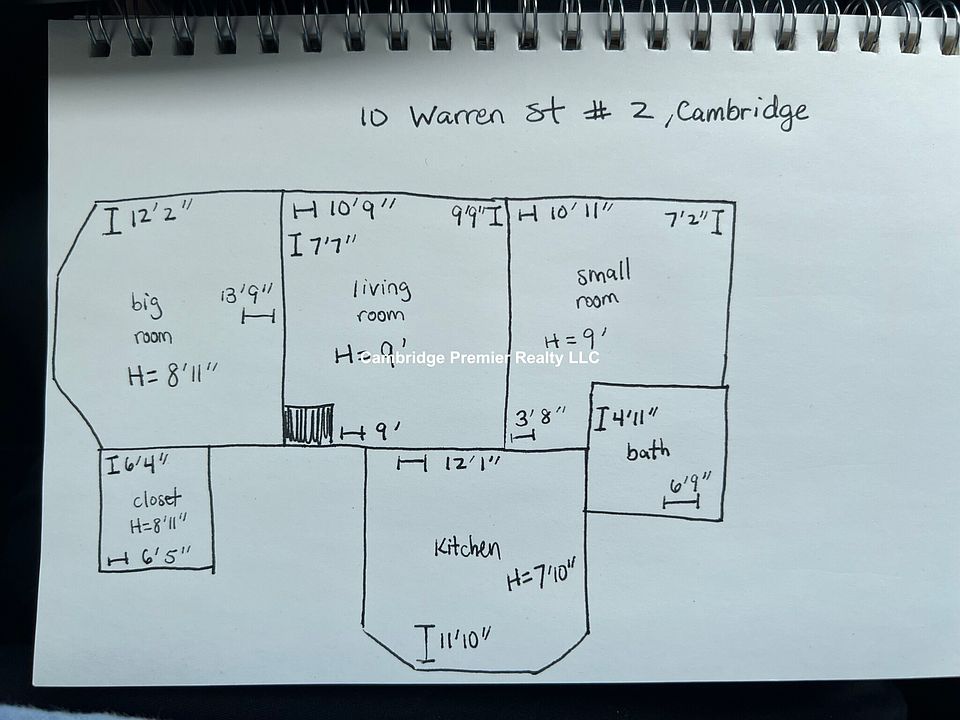 10 Warren St # 2, Cambridge
12'2"
13'9"
big
room
H= 8'11"
10'9"
9'9"
7'7"
living
room
H= 9'
9'
10'11"
7'2"
small
room
H= 9'
3'8"
Cambridge Premier Realty LLC
4'11"
bath
6'9"
6'4"
closet
H=8'11"
6'5"
12'1"
Kitchen
H=7'10"
11'10"